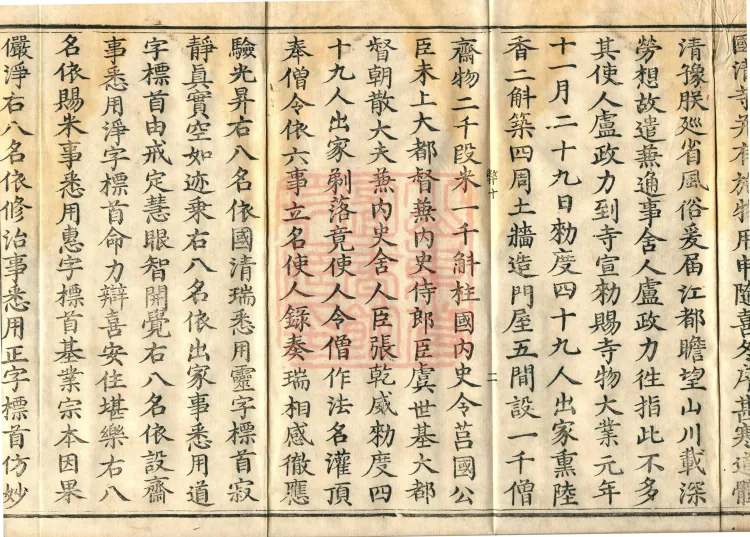 國清寺
清豫朕廵省風俗爰届江都瞻望山川載深
勞想故遣兼通事舍人盧政力徃指此不多
其使人盧政力到寺宣勑賜寺物大業元年
十一月二十九日勑度四十九人出家熏陸
香二斛築四周土牆造門屋五間設一千僧
齋物二千段米一千斛柱國内史令莒國公
臣未上大都督兼内史侍郎臣虞世基大都
督朝散大夫兼内史舍人臣張乾威勑度四
十九人出家剃落竟使人令僧作法名灌頂
奉僧令依六事立名使人録奏瑞相感徹應
驗光昇右八名依國清瑞悉用靈字標首寂
靜真實空如迹乗右八名依出家事悉用道
字標首由戒定慧眼智開覺右八名依設齋
事悉用淨字標首命力辯喜安住堪樂右八
名依賜米事悉用惠字標首基業宗本因果
儼淨右八名依修治事悉用正字標首仿妙
十
二